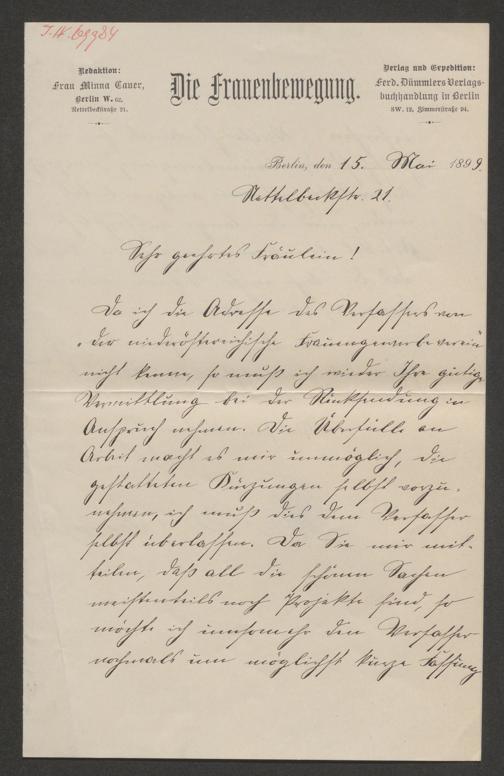 J.N. 69984
Redaktion:
Frau Minna Cauer,
Berlin W. 62.
Nettelbeckstraße 21.
Die Frauenbewegung.
Verlag und Expedition:
Ferd. Dümmlers Verlags-
buchhandlung in Berlin
SW. 12, Zimmerstraße 94.
Berlin, den 15. Mai 1899.
Nettelbeckstr. 21.
Sehr geehrtes Fräulein!
Da ich die Adresse des Verfassers von
"der niederösterreichische Frauengewerbeverein"
nicht kenne, so muß ich wieder Ihre gütige
Vermittlung bei der Rücksendung in
Anspruch nehmen. Die Überfülle an
Arbeit macht es mir unmöglich, die
gestatteten Kürzungen selbst vorzu-
nehmen, ich muß dies dem Verfasser
selbst überlassen. Da Sie mir mit-
teilen, daß all die schönen Sachen
meistenteils noch Projekte sind, so
möchte ich umsomehr den Verfasser
nochmals um möglichst kurze Fassung